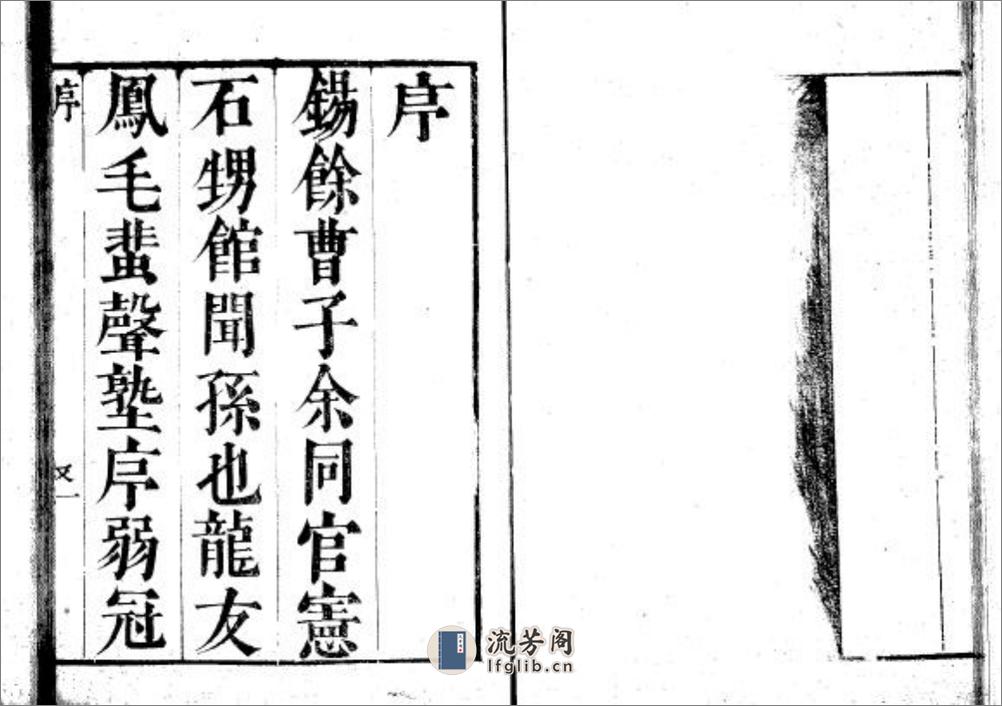 序
錫餘曹子余同官憲
石甥館聞孫也龍友
鳳毛蜚聲塾序弱冠
序
又一
流芳阁
lfglib.cn